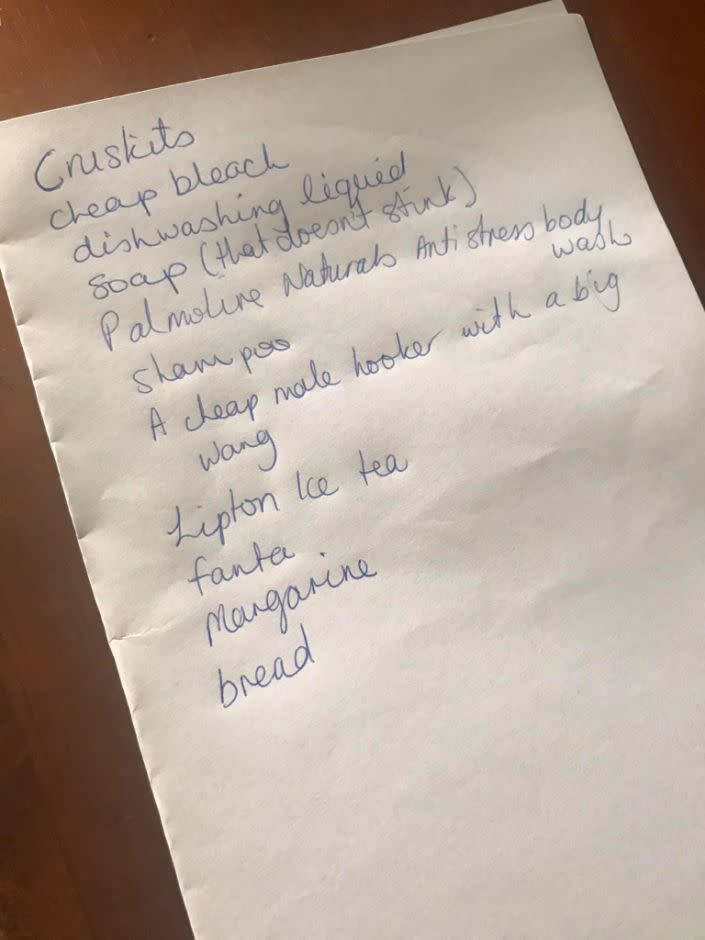 Cruskits
cheap bleach
dishwashing liquid
soap (that doesn't stink)
Palmolive Naturals Anti stress body
wash
shampoo
A cheap male hooker with a big
wang
Lipton Ice tea
fanta
Margarine
bread